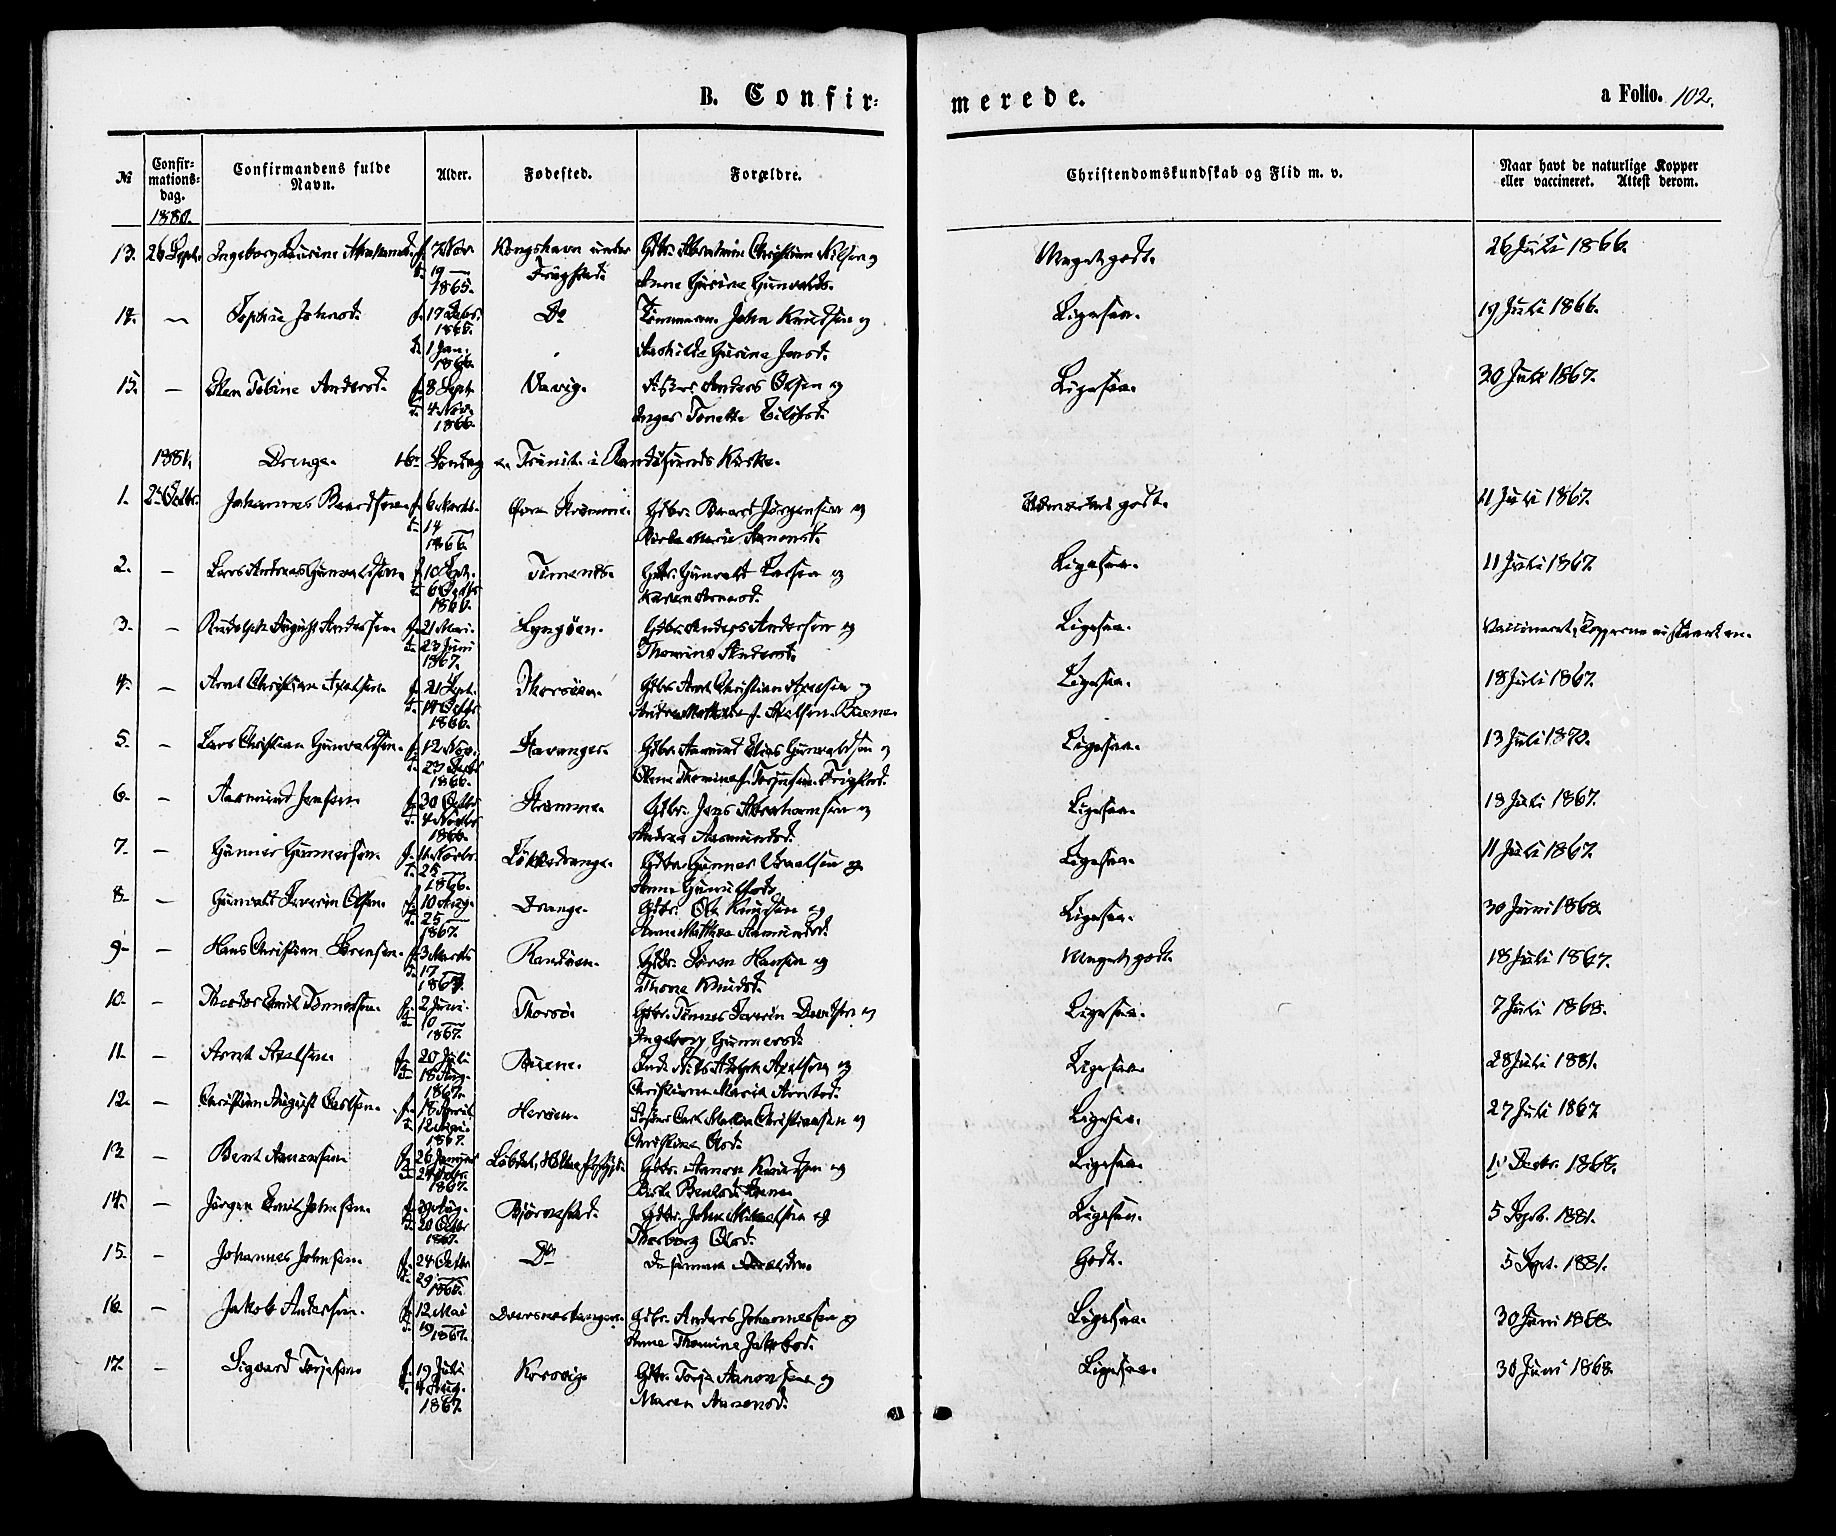 B. Confir-
merede.
a Folio. 102.
№
Confir-
mations-
dag.
Confirmandens fulde
Navn.
Alder.
Fødested.
Forældre.
Christendomskundskab og Flid m. v.
Naar havt de naturlige Kopper
eller vaccineret. Attest derom.
1880.
13. 26 Sept. Ingeborg Laurine f. 7 Nov. Kongshavn under Gbr. Abraham Christian Nilsen og Meget godt. 26 Juli 1866.
d. 19 — Frigstad. Anne Gurine Gunvalds.
1865.
14. — Sophie Johnsd. f. 17 Debr. Do Tømmerm. John Knudsen og Ligesaa. 19 Juli 1866.
1865.
d. 1 Jan. Gurine Jensd.
1866.
15. — Elen Tobine Andersd. f. 8 Sept. Vavig. Anders Olsen og Ligesaa. 30 Juli 1867.
d. 4 Nov. Inger Tonette
1866.
1881. Drenge. 16 Søndag e. Trinit. i Randøsunds Kirke.
1. 2 Octbr. Johannes Baardsen f. 6 Marts. Øvre Strømme. Gbr. Baard Jørgensen og Udmærket godt. 11 Juli 1867.
d. 14 Marie Aanonsd.
1866.
2. — Lars Andreas Gunvaldsen f. 10 Sept. Timenes. Gbr. Gunvald Larsen og Ligesaa. 11 Juli 1867
d. 6 Octbr Karen
1866.
3. — Rudolph August Andersen f. 21 Mai. Lyngøen. Gbr. Anders Andersen og Ligesaa. Vaccineret,
d. 23 Juni Thomine Andersd.
1867.
4. — Arnt Christian Axelsen. f. 21 Sept. Thorsøen. Gbr. Arnt Christian Axelsen og Ligesaa. 18 Juli 1867.
d. 14 Octbr Andrea f. Axelsen. Buene
1866.
5. — Lars Christian Gunvaldsen. f. 12 Nov. Stavanger. Gbr. Aanund Elias Gunvaldsen og Ligesaa. 13 Juli 1870.
d. 23 Debr Olene Thomine f. Terjesen. Frigstad.
1866.
6. — Aasmund Jensen. f. 30 Octbr Strømme. Gbr. Jens Abrahamsen og Ligesaa. 18 Juli 1867.
d. 4 Novbr Andrea Aasmundsd.
1866.
7. — Gunner Gunnersen. f. 16 Novbr. Gbr. Gunner og Ligesaa. 11 Juli 1867.
d. 25 — Anne
1866.
8. — Gunvald Severin Olsen. f. 10 Aug. Drange. Gbr. Ole Knudsen og Ligesaa. 30 Juni 1868.
d. 25 — Anne Mathea Aasmundsd.
1867.
9. — Hans Christian Sørensen. f. 3 Marts Randøen. Gbr. Søren Hansen og Meget godt. 18 Juli 1867.
d. 17 Thone Knudsd.
1867.
10. — Emil Tønnessen. f. 2 Juni. Thorsø. Gbr. Tønnes Severin Davidsen og Ligesaa. 7 Juli 1868.
d. 10 — Ingeborg Gunnersd.
1867.
11. — Arnt Axelsen. f. 20 Juli Buene. Nils Adolph Axelsen og Ligesaa. 28 Juli 1881.
d. 18 Aug. Christiane Marie Arntsd.
1867.
12. — Christian August Carlsen. f. 18 April Herøen. Carl Christiansen og Ligesaa. 27 Juli 1867
d. 12 Mai. Christine Olsd.
1867.
13. — Bent Aanensen f. 26 Januar Gbr. Aanen Knudsen og Ligesaa. Decbr. 1868.
d. 24 Febr. Berte
1867.
14. — Jørgen Emil Johnsen. f. 29 Aug. Bjørnestad. Gbr. John Mikaelsen og Ligesaa. 5 Sept. 1881.
d. 20 Octbr Thorborg Olsd.
1867.
15. — Johannes Johnsen. f. 24 Octbr Do De samme Forældre. Godt. 5 Sept. 1881.
d. 29 —
1865.
16. — Jakob Andersen. f. 12 Mai Dversnestangen. Gbr. Anders Johannessen og Ligesaa. 30 Juni 1868.
d. 19 — Anne Thomine Jakobsd.
1867.
17. — Sigvard Terjesen f. 19 Juli Korsvig. Gbr. Terje Aanonsen og Ligesaa. 30 Juni 1868.
d. 4 Aug. Maren Aanensd.
1867.